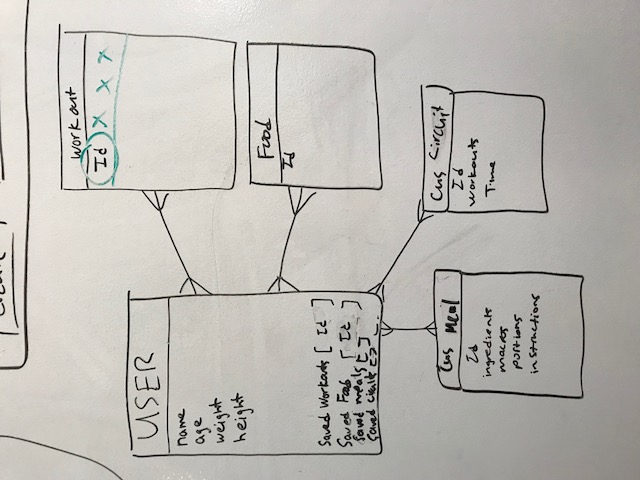 Create
Workout
Id X X X
USER
name
age
weight
height
Saved Workouts [ Id ]
Saved Food [ Id ]
Saved meals [ ]
Food
Id
Cus Meal
Id
ingredients
macros
portions
instructions
Cus Circuit
Id
workouts
Time